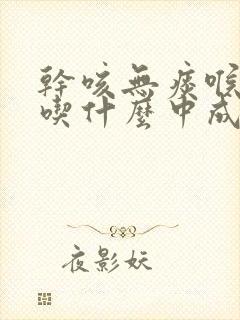 幹咳無痰喉
喫什麼中成
夜影妖